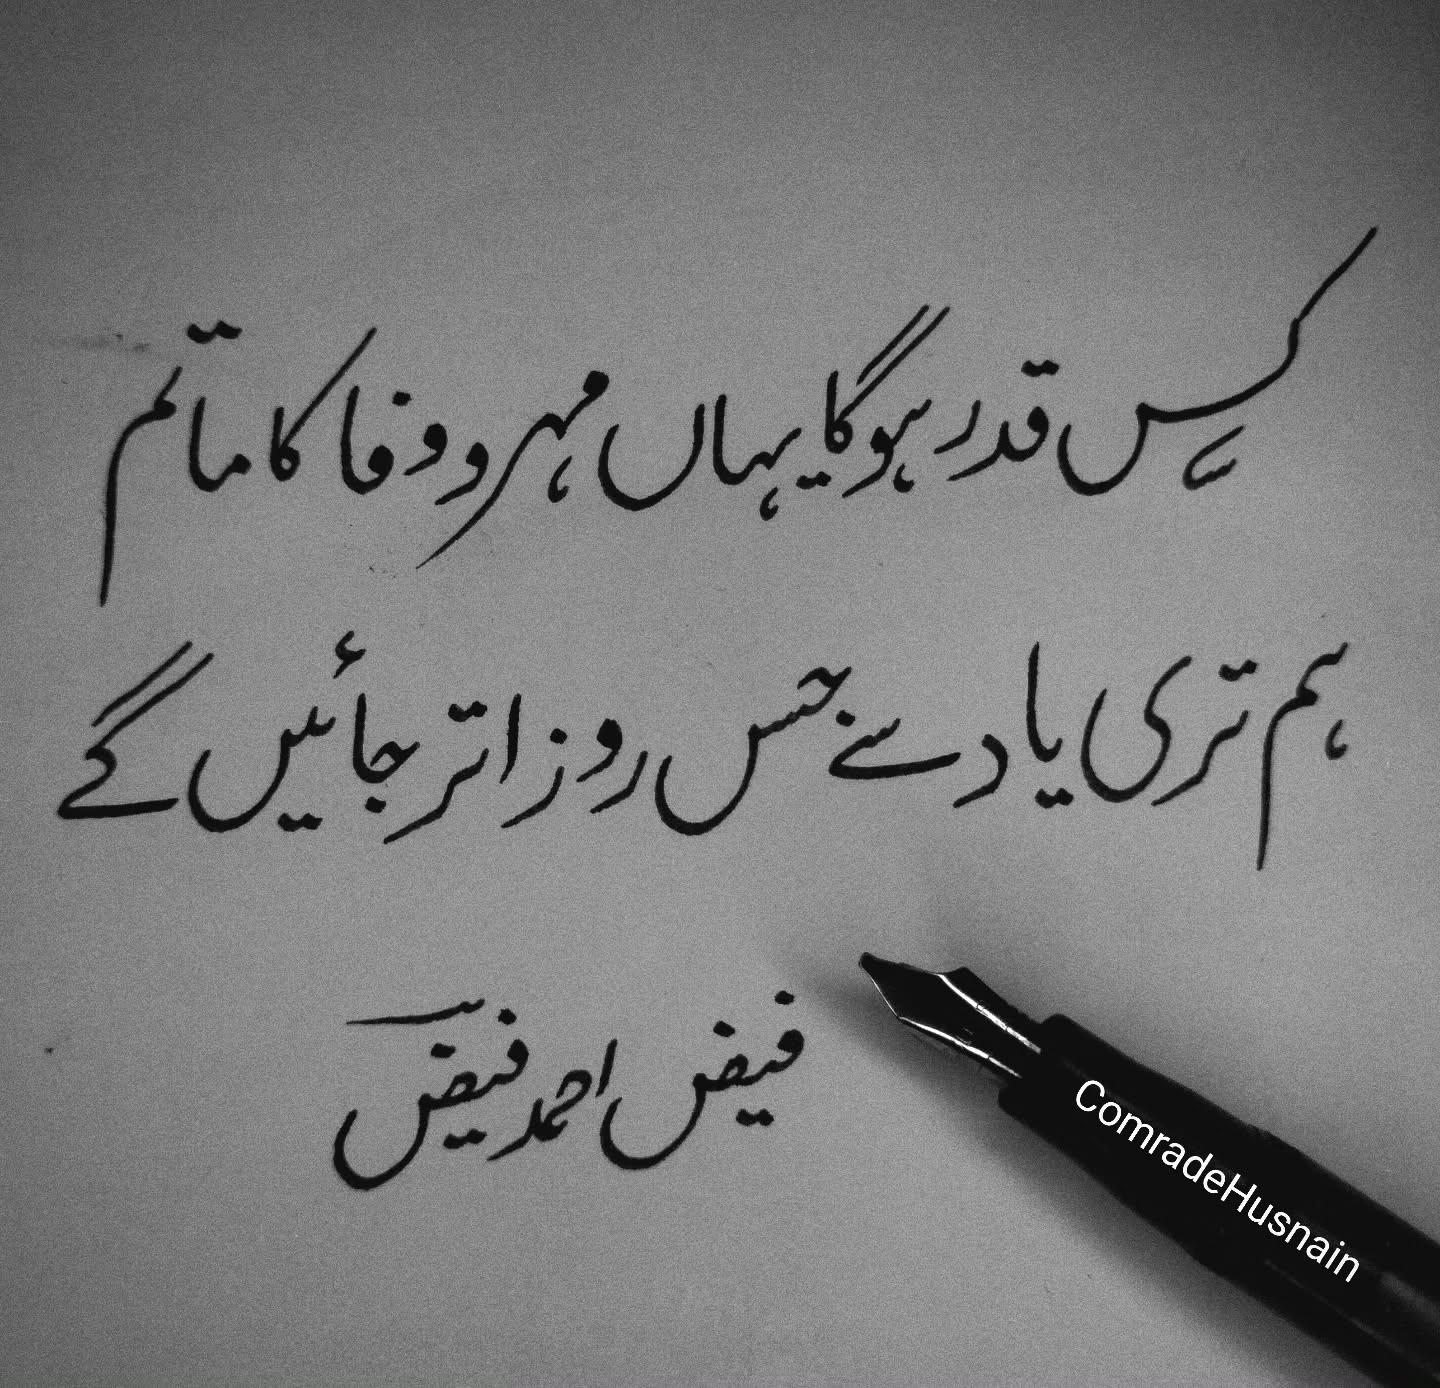 کس قدر ہو گا یہاں مہر و وفا کا ماتم
ہم تری یاد سے جس روز اتر جائیں گے
فیض احمد فیض
ComradeHusnain